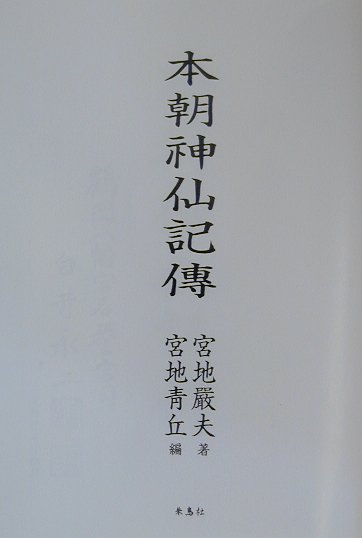 本朝神仙記傳
宮地嚴夫 著
宮地青丘 編
朱鳥社